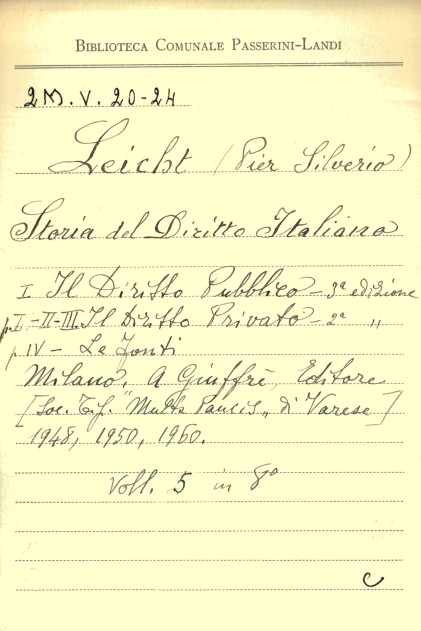 BIBLIOTECA COMUNALE PASSERINI-LANDI
2M. V. 20-24
Leicht (Pier Silverio)
Storia del Diritto Italiano
I Il Diritto Pubblico - 3ª edizione
I-II-III Il Diritto Privato - 2ª „
p. IV - Le Fonti
Milano, A Giuffrè, Editore
[Soc. Tip. "Multa Paucis„ di Varese]
1948, 1950, 1960.
Voll. 5 in 8°
C